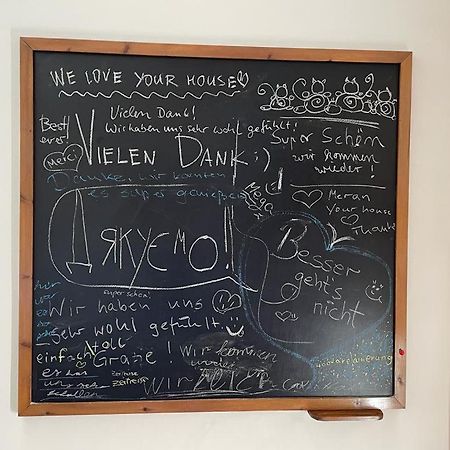 WE LOVE YOUR HOUSE
Vielen Dank!
Wir haben uns sehr wohl gefühlt!
Best
ever!
Merci
VIELEN DANK ;)
Super Schön
wir kommen
wieder!
Danke, wir konnten
es super genießen
Mega
Meran
Your house
Thanks
ДЯКУЄМО!
Besser
geht's
nicht
super schön!
Wir haben uns
sehr wohl gefühlt.
einfach toll
Grazie!
Wir kommen
wieder
WIR